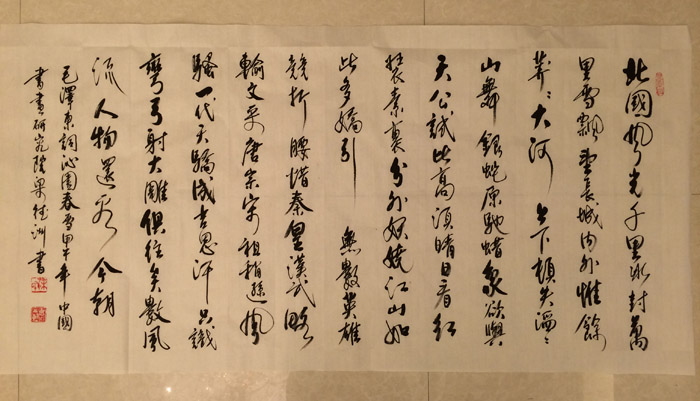 北國風光千里冰封萬
里雪飄望長城内外惟餘
莽〻大河上下頓失滔〻
山舞銀蛇原馳蜡象欲與
天公試比高須晴日看紅
裝素裹分外妖嬈江山如
此多嬌引 無數英雄
競折腰惜秦皇漢武略
輸文采唐宗宋祖稍遜風
騷一代天驕成吉思汗只識
彎弓射大雕俱往矣數風
流人物還看今朝
毛澤東詞沁園春雪甲午年 中國
書畫研究院梁洲書